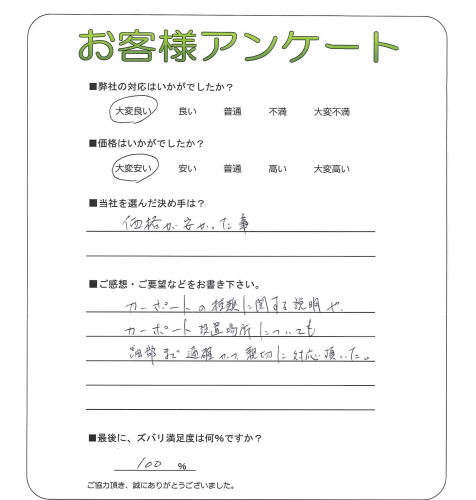 お客様アンケート
■弊社の対応はいかがでしたか？
大変良い 良い 普通 不満 大変不満
■価格はいかがでしたか？
大変安い 安い 普通 高い 大変高い
■当社を選んだ決め手は？
価格が安かった事
■ご感想・ご要望などをお書き下さい。
カーポートの種類に関する説明や、
カーポート設置場所についても
細部まで適確かつ親切に対応頂いた。
■最後に、ズバリ満足度は何%ですか？
100 %
ご協力頂き、誠にありがとうございました。